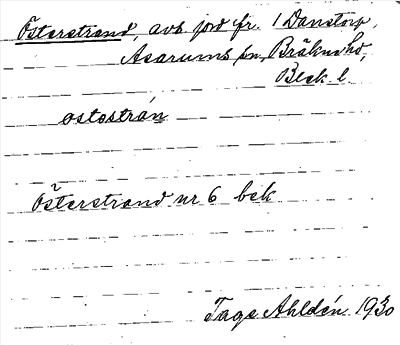 Österstrand, avs. jord fr. 1 Danstorp,
Asarums sn, Bräkne hd,
Blek. l.
ostostrán
Österstrand nr 6 bek
Tage Ahldén. 1930